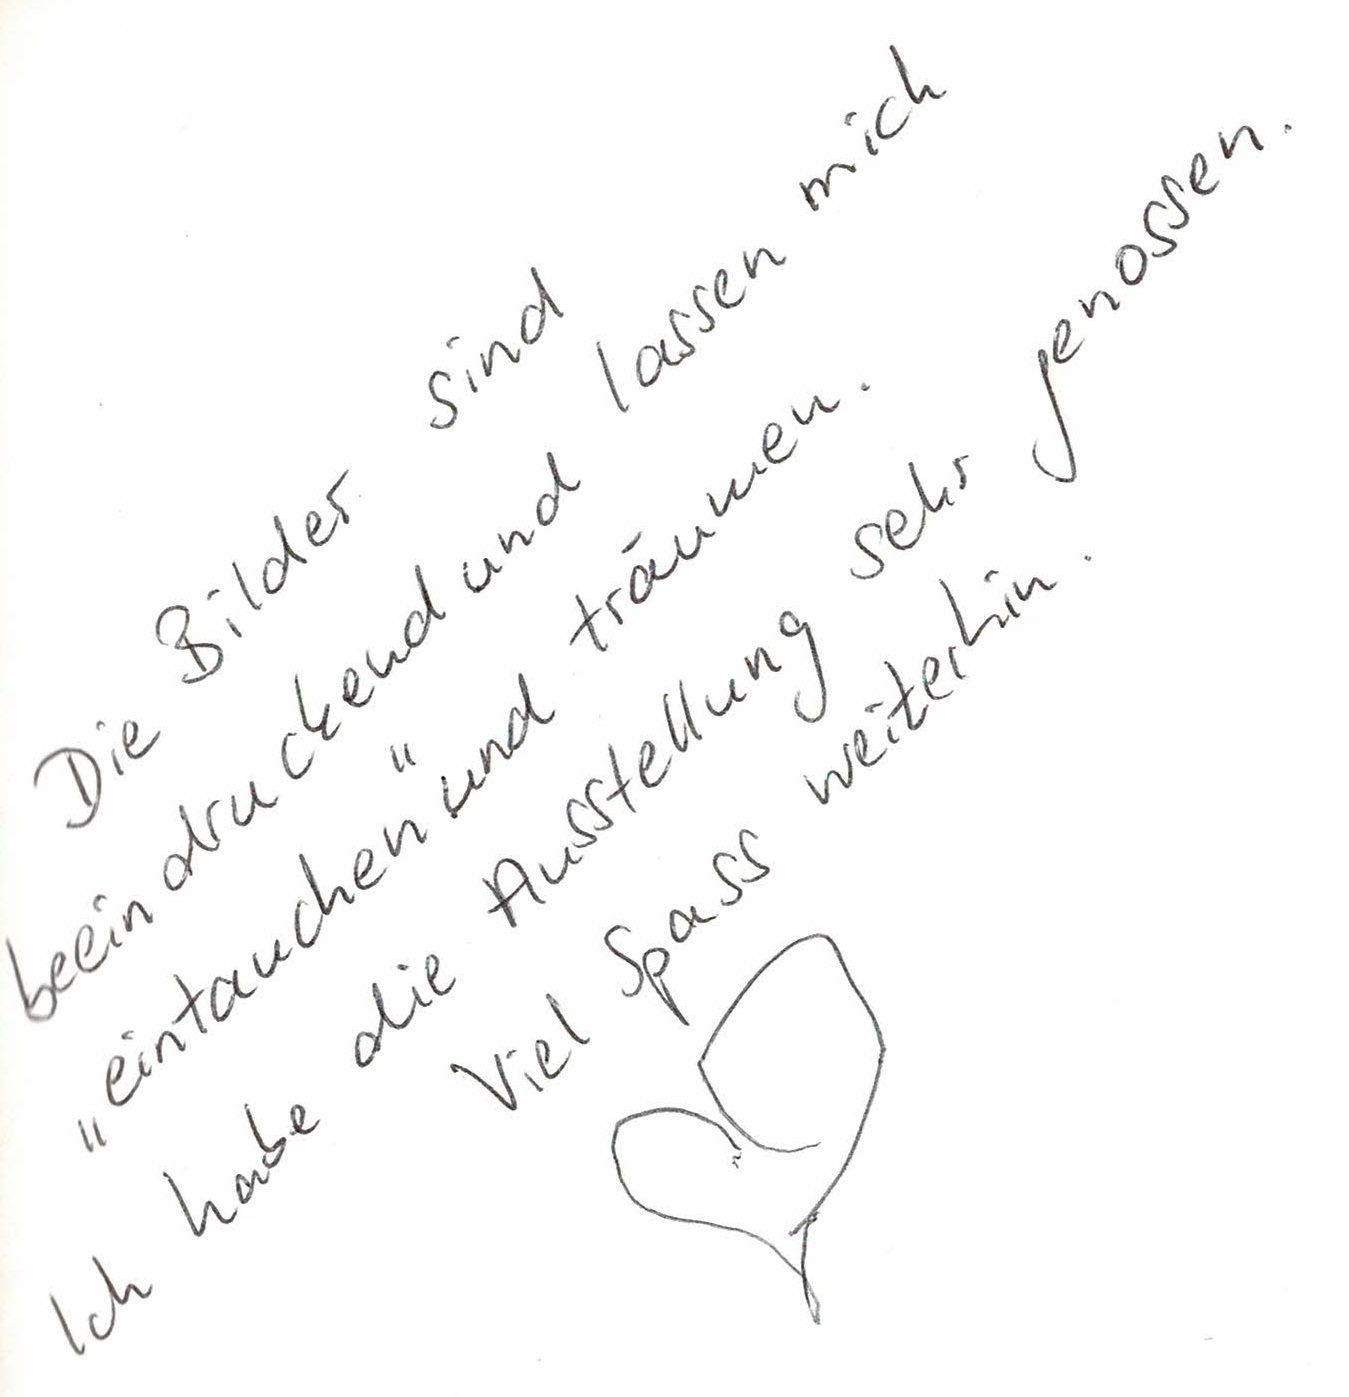 Die Bilder sind
beeindruckend und lassen mich
„eintauchen" und träumen.
Ich habe die Ausstellung sehr genossen.
Viel Spass weiterhin.